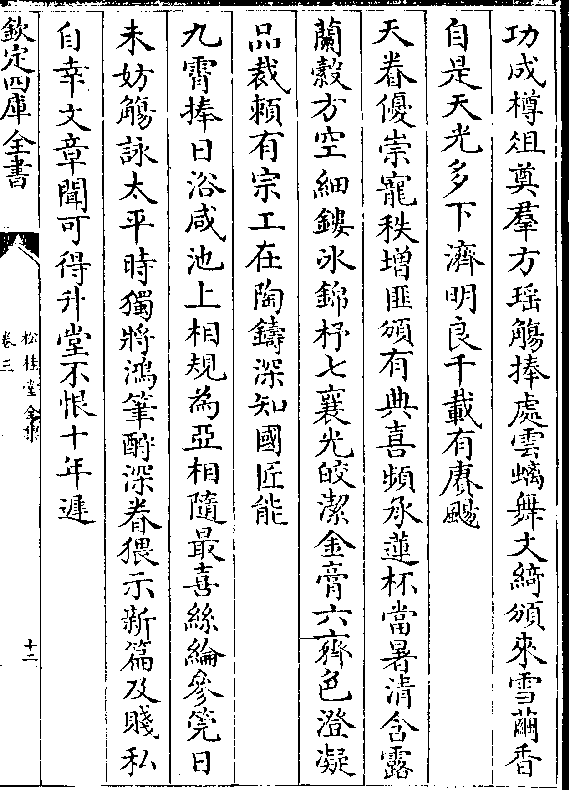 功成樽俎奠羣方瑶觴捧處雲螭舞文綺頒來雪繭香
自是天光多下濟明良千載有賡颺
天眷優崇寵秩增匪頒有典喜頻承蓮杯當暑清含露
蘭縠方空細鏤冰錦杼七襄光皎潔金膏六齊色澄凝
品裁頼有宗工在陶鑄深知國匠能
九霄捧日浴咸池上相規為亞相隨最喜絲綸參筦日
未妨觴詠太平時獨將鴻筆酧深眷猥示新篇及賤私
自幸文章聞可得升堂不恨十年遲
欽定四庫全書
松桂堂全集
卷三
十二